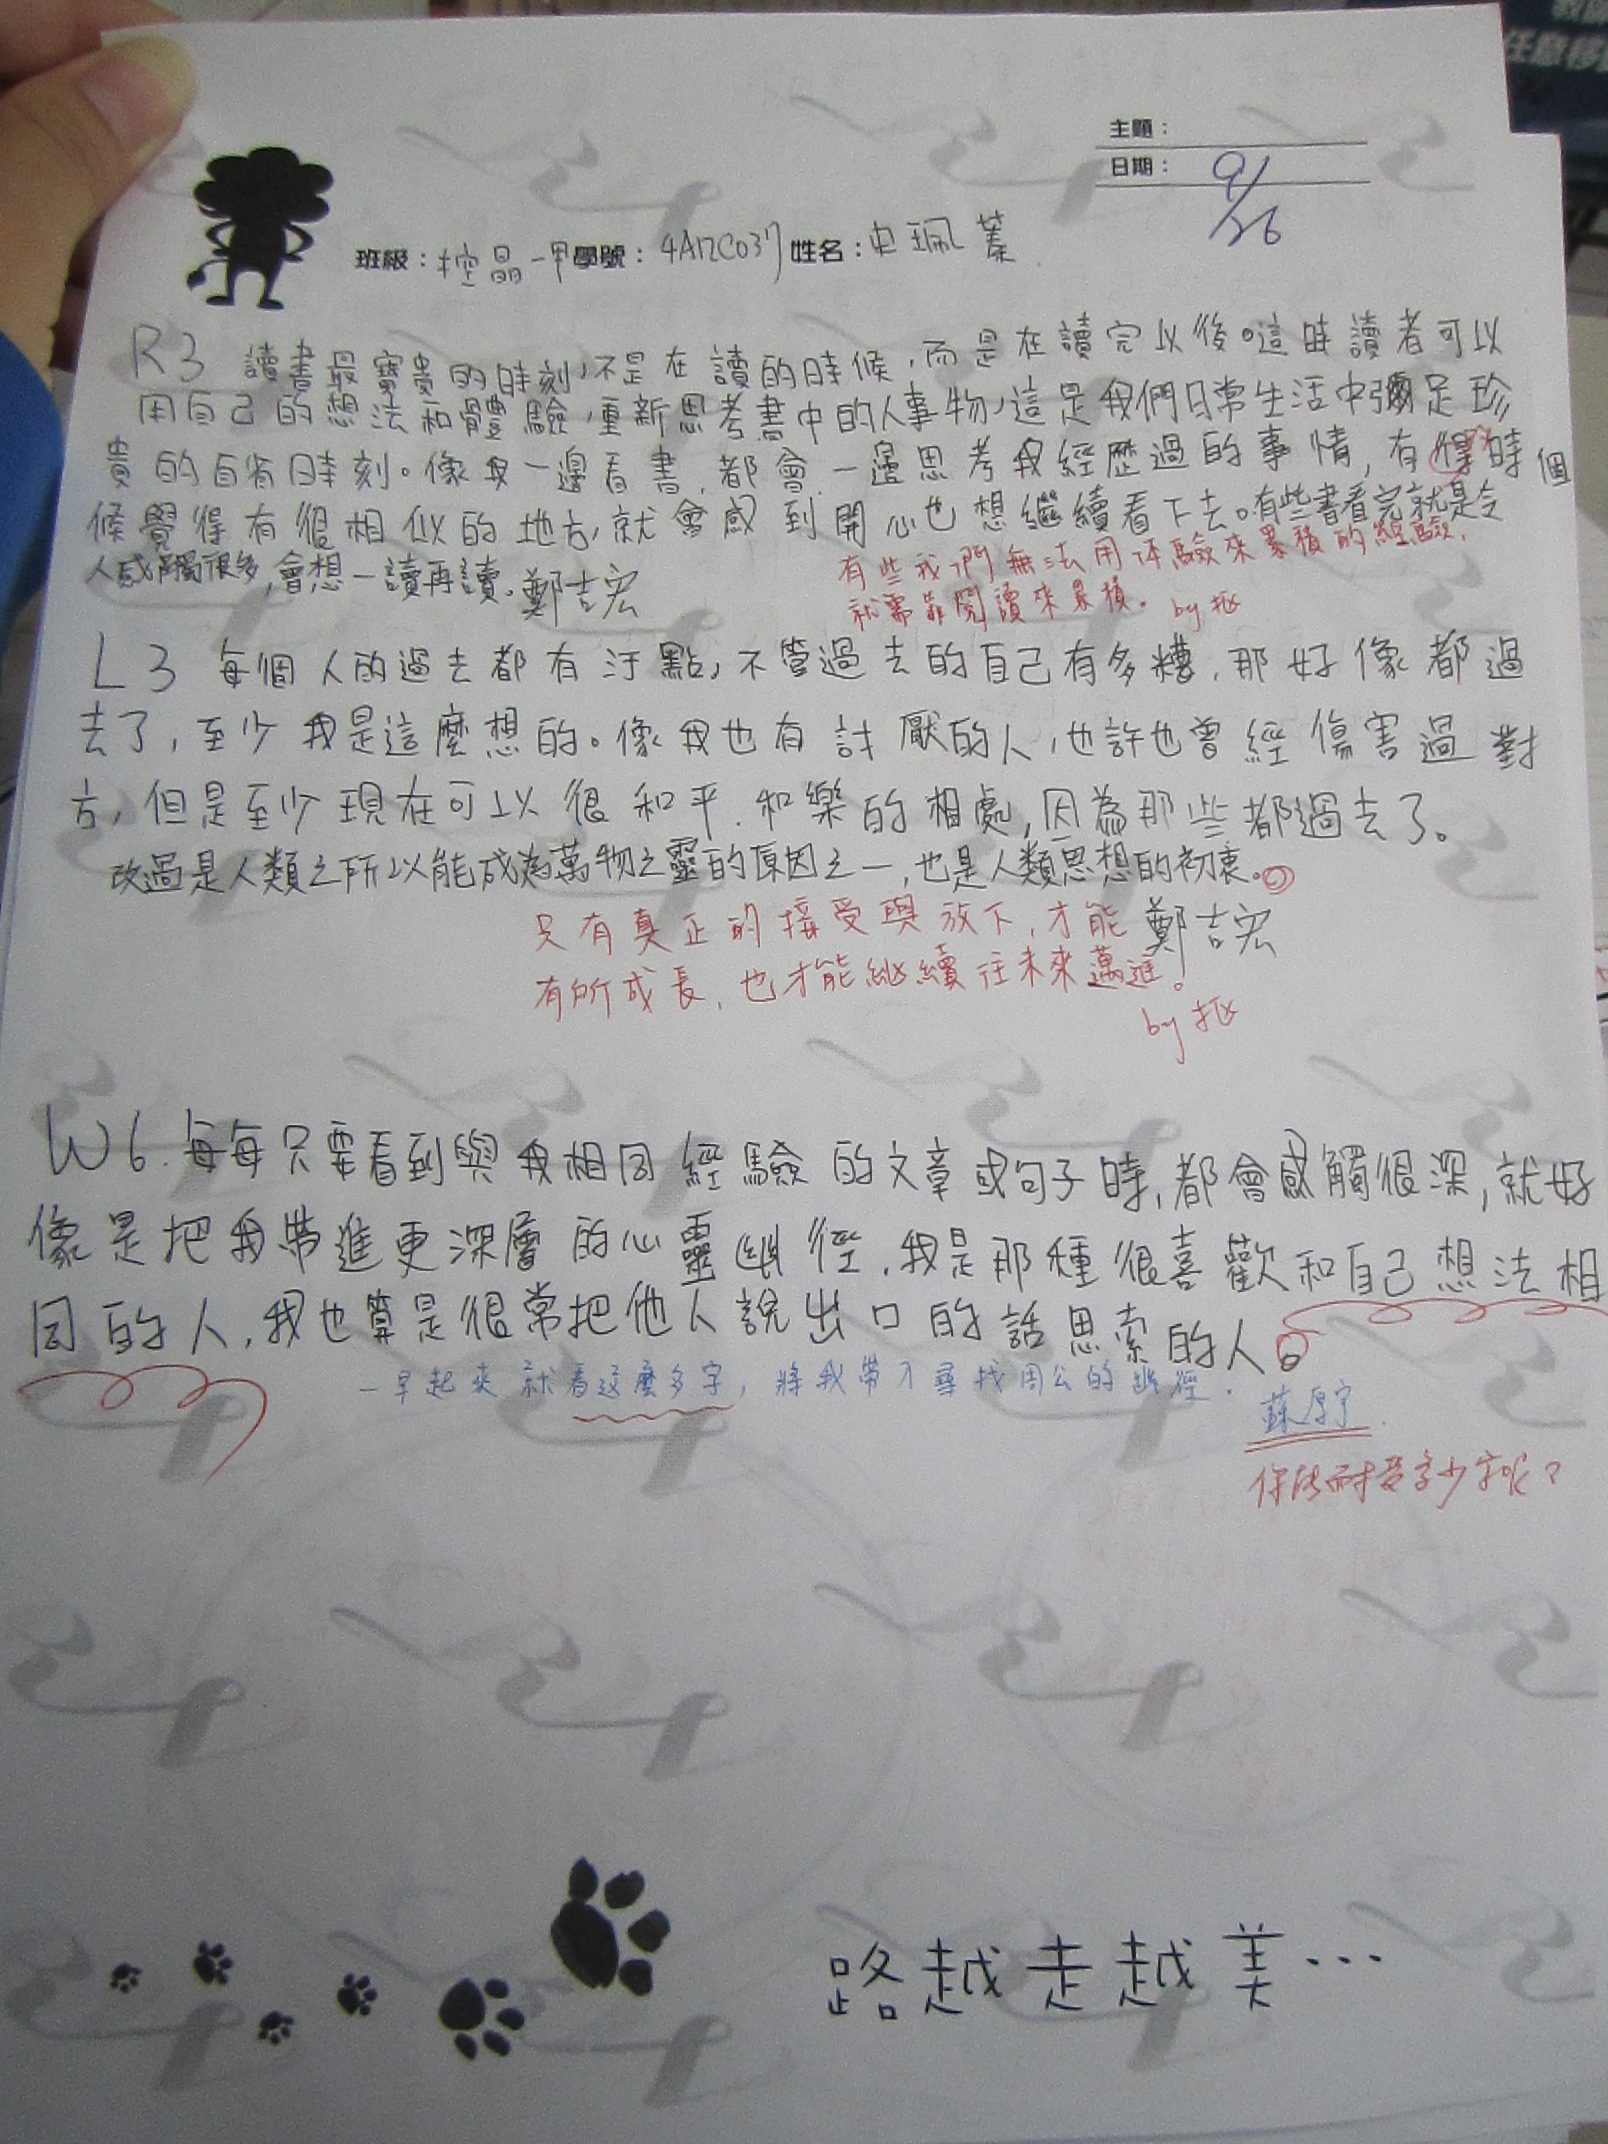 任意移
主題：
日期： 9/26
班級：控晶一甲 學號：4A12C037 姓名：史珮蓁
R3 讀書最寶貴的時刻，不是在讀的時候，而是在讀完以後。這時讀者可以
用自己的想法和體驗，重新思考書中的人事物，這是我們日常生活中彌足珍
貴的自省時刻。像我一邊看書，都會一邊思考我經歷過的事情，有 時個
候覺得有很相似的地方，就會感到開心也想繼續看下去。有些書看完就是令
人感觸很多，會想一讀再讀。鄭吉宏
有些我們無法用体驗來累積的經驗，
就需靠閱讀來累積。 by 抠
L3 每個人的過去都有汙點，不管過去的自己有多糟，那好像都過
去了，至少我是這麼想的。像我也有討厭的人，也許也曾經傷害過對
方，但是至少現在可以很和平．和樂的相處，因為那些都過去了。
改過是人類之所以能成為萬物之靈的原因之一，也是人類思想的初衷。
只有真正的接受與放下，才能 鄭吉宏
有所成長，也才能继續往未來邁進。
by 抠
W6.每每只要看到與我相同經驗的文章或句子時，都會感觸很深，就好
像是把我帶進更深層的心靈幽徑，我是那種很喜歡和自己想法相
同的人，我也算是很常把他人說出口的話思索的人。
一早起來就看這麼多字，將我帶入尋找周公的幽徑．
你能耐受多少字呢？
路越走越美…